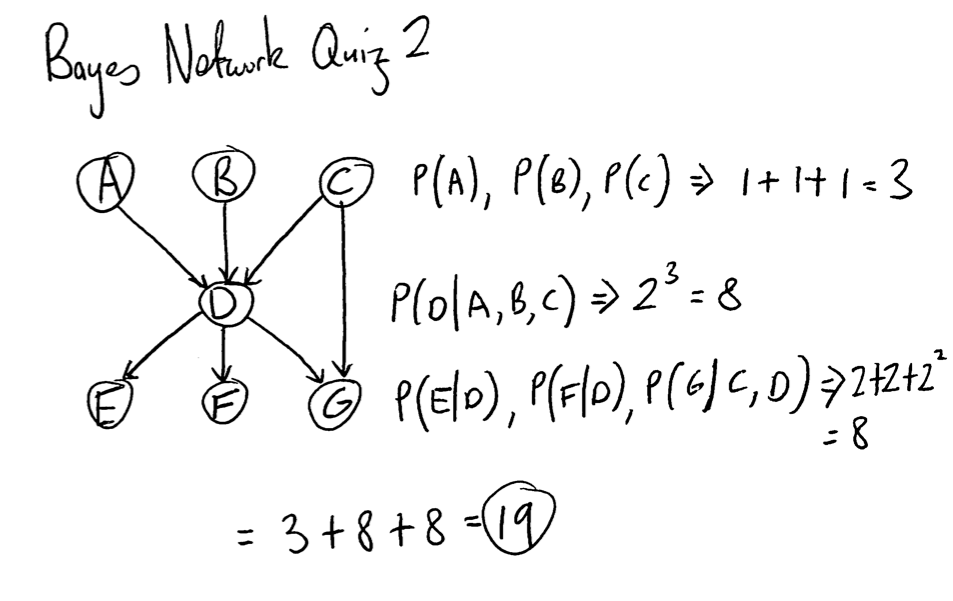 Bayes Network Quiz 2
A B C P(A), P(B), P(C) ⇒ 1+1+1=3
D P(D|A,B,C) ⇒ 2³ = 8
E F G P(E|D), P(F|D), P(G|C,D) ⇒ 2+2+2²
= 8
= 3+8+8 = 19